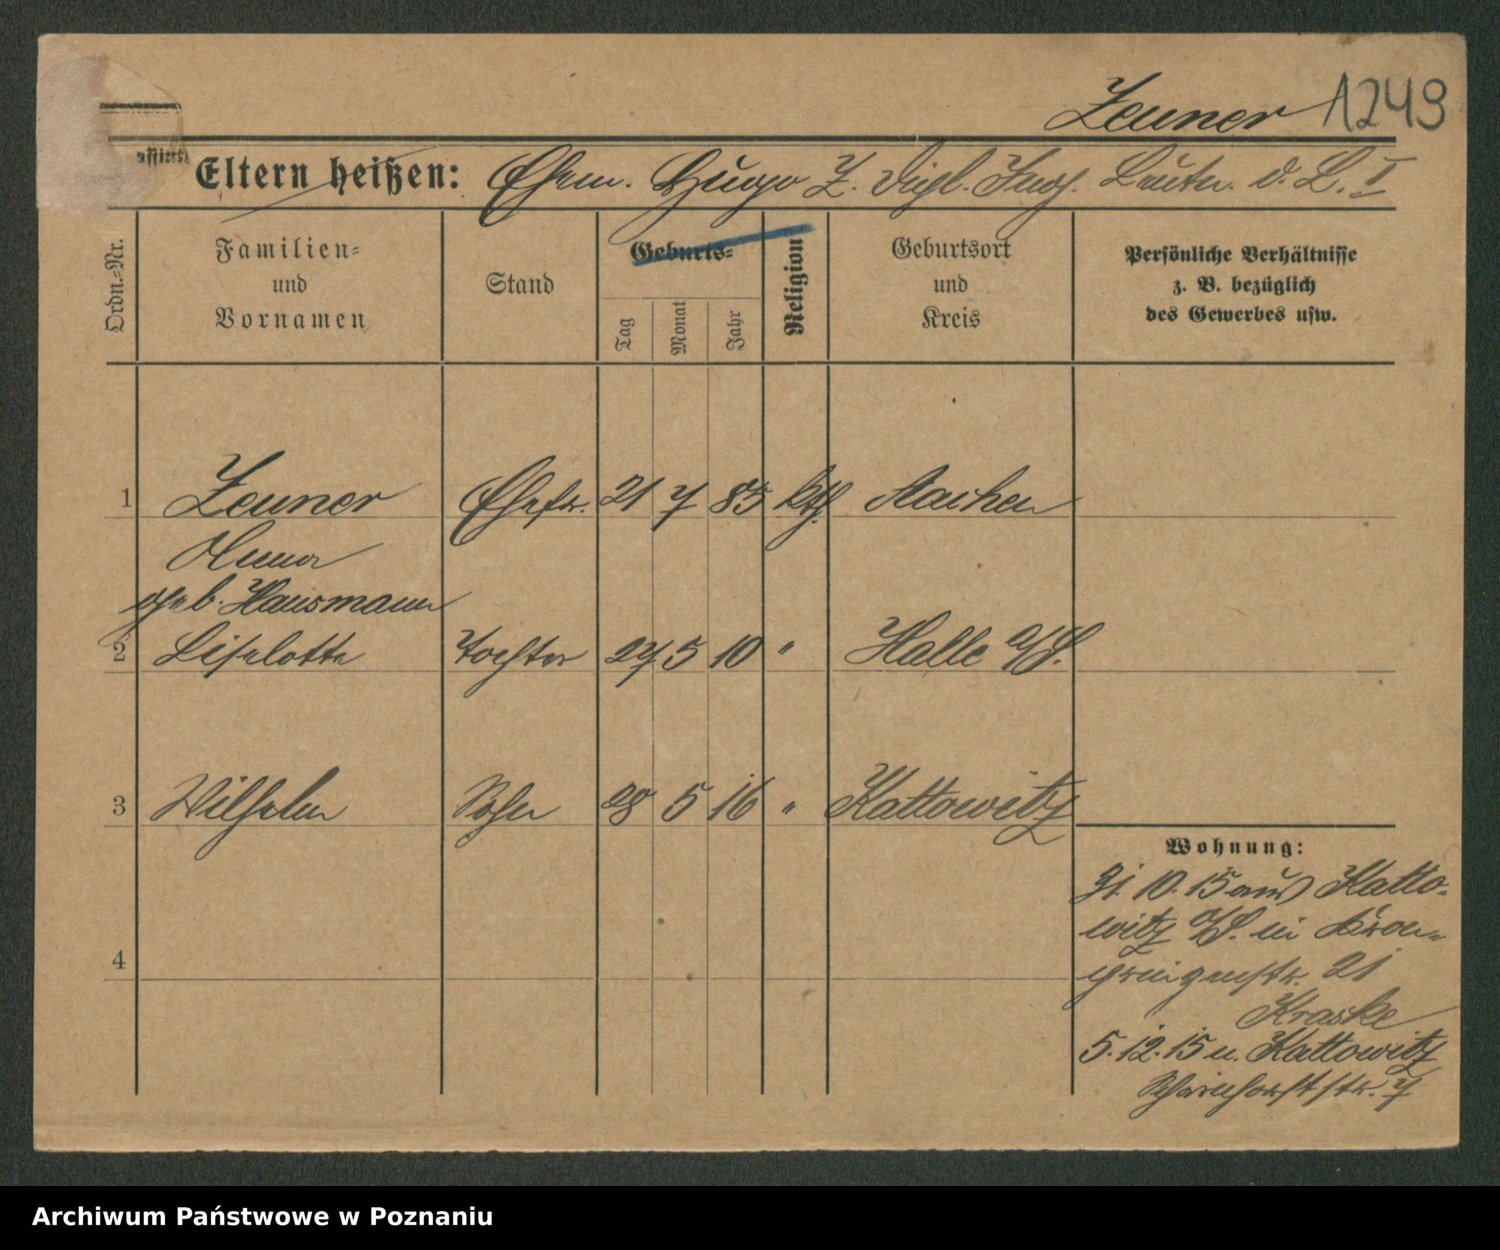 Zeuner 1249
Eltern heißen: Ehem. Hugo Z. Dipl. Ing. Leutn. d. L. I
Ordn.-Nr.
Familien-
und
Vornamen
Stand
Geburts-
Tag
Monat
Jahr
Religion
Geburtsort
und
Kreis
Persönliche Verhältnisse
z. B. bezüglich
des Gewerbes usw.
1 Zeuner Ehefr. 21 7 85 kth. Aachen
geb. Hausmann
2 Liselotte Tochter 27 5 10 " Halle a/S.
3 Wilhelm Sohn 28 5 16 " Kattowitz
4
Wohnung:
31. 10. 15 aus Katto-
witz O/S. in Kron-
prinzenstr. 21
Kraske
5. 12. 15 n. Kattowitz
Scharnhorststr. 7
Archiwum Państwowe w Poznaniu